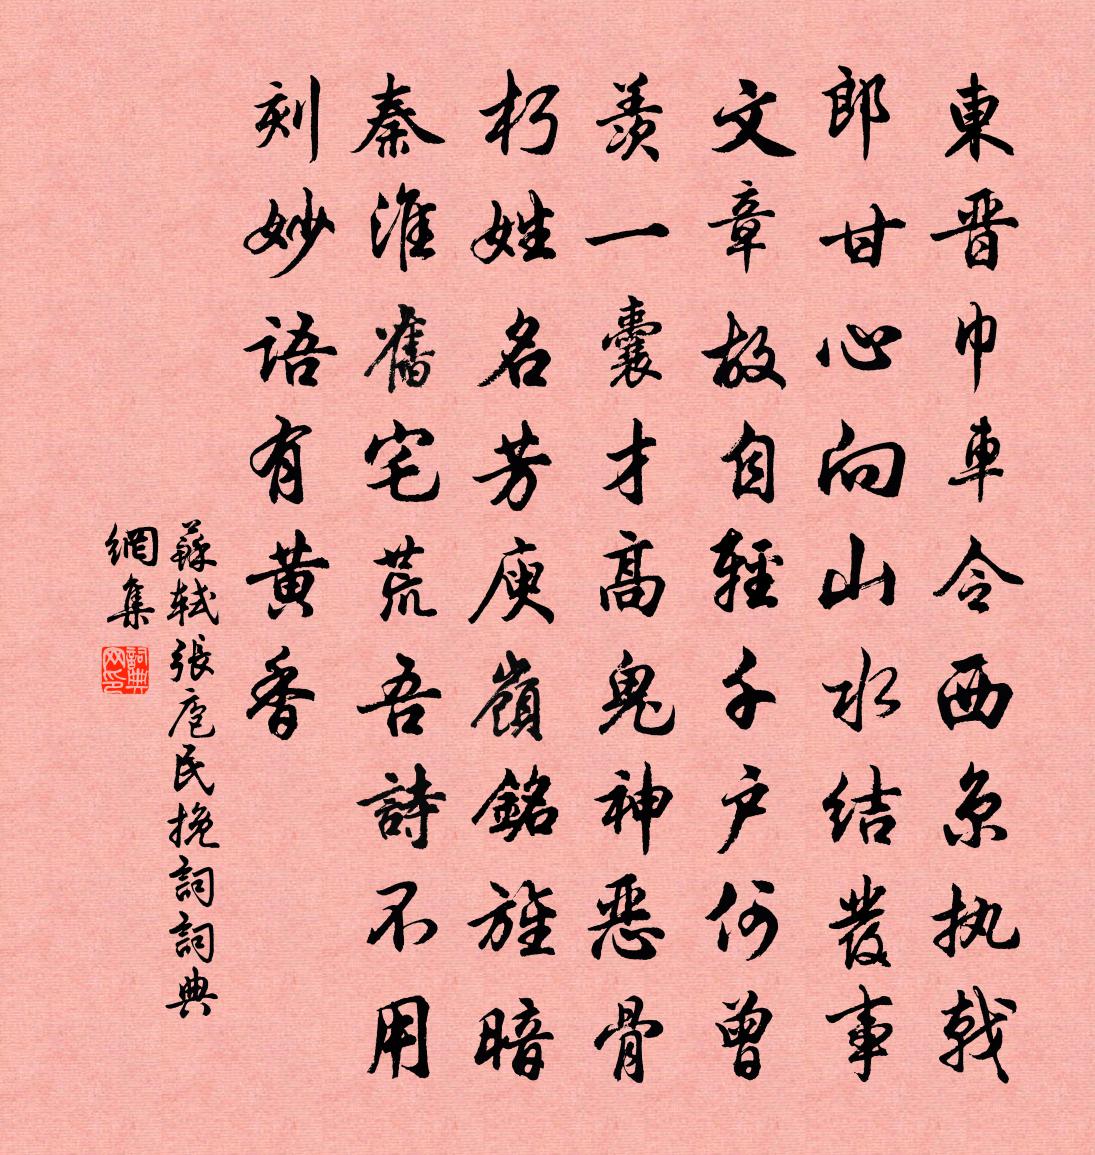 東晋巾車令西京执戟
郎甘心向山水结發事
文章故自輕千户何曾
羨一囊才高鬼神恶骨
朽姓名芳庾嶺銘旌暗
秦淮舊宅荒吾詩不用
刻妙語有黄香
蘇轼張庖民挽詞詞典
網集
詞典
网印